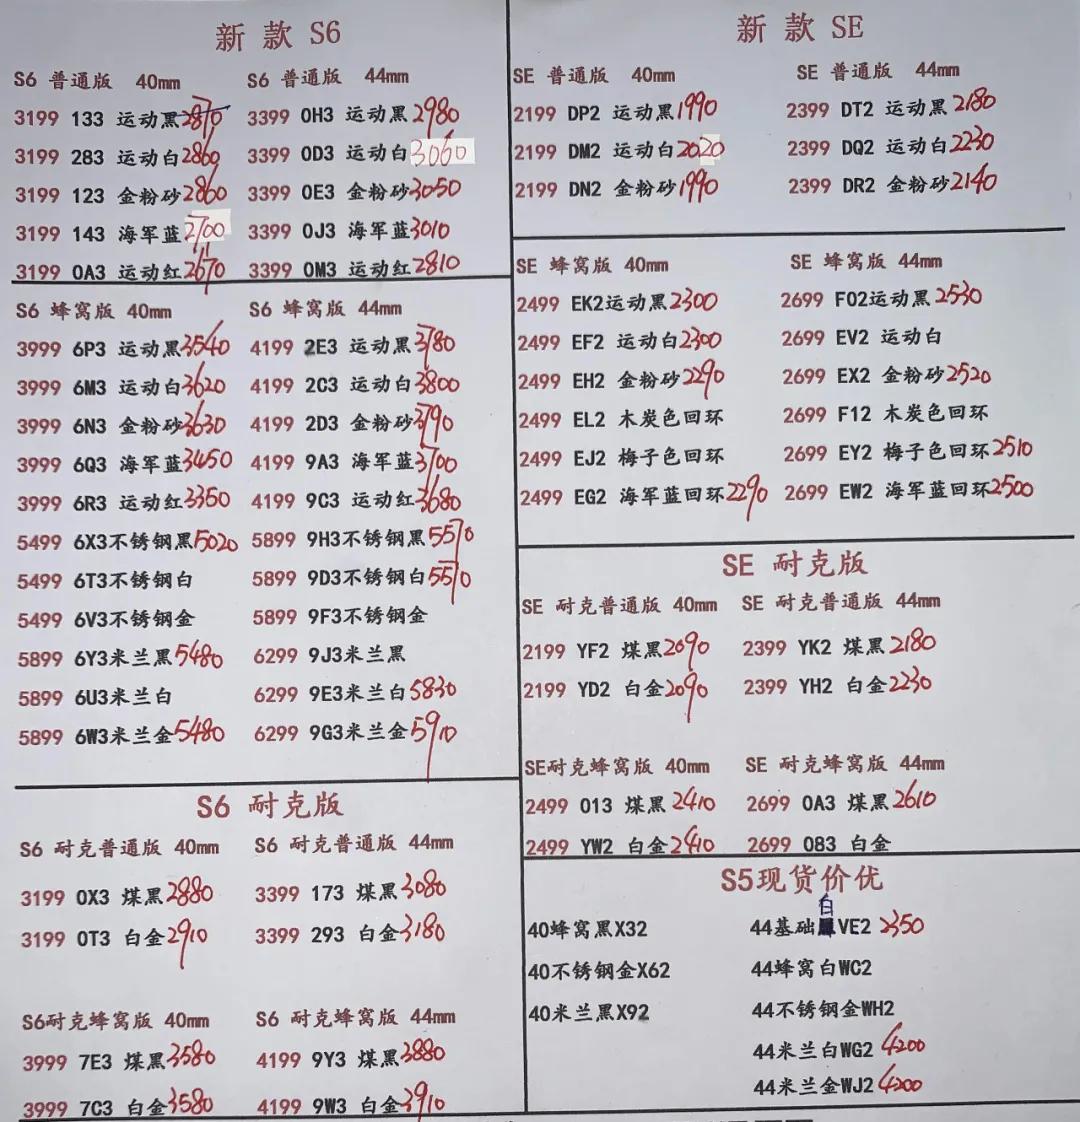 新款 S6
S6 普通版 40mm
3199 133 运动黑2870
3199 283 运动白2860
3199 123 金粉砂2860
3199 143 海军蓝2700
3199 0A3 运动红2670
S6 普通版 44mm
3399 0H3 运动黑2980
3399 0D3 运动白3060
3399 0E3 金粉砂3050
3399 0J3 海军蓝3010
3399 0M3 运动红2810
S6 蜂窝版 40mm
3999 6P3 运动黑3540
3999 6M3 运动白3620
3999 6N3 金粉砂3630
3999 6Q3 海军蓝3450
3999 6R3 运动红3350
5499 6X3不锈钢黑5020
5499 6T3不锈钢白
5499 6V3不锈钢金
5899 6Y3米兰黑5480
5899 6U3米兰白
5899 6W3米兰金5480
S6 蜂窝版 44mm
4199 2E3 运动黑3780
4199 2C3 运动白3800
4199 2D3 金粉砂3790
4199 9A3 海军蓝3700
4199 9C3 运动红3680
5899 9H3不锈钢黑5570
5899 9D3不锈钢白5570
5899 9F3不锈钢金
6299 9J3米兰黑
6299 9E3米兰白5830
6299 9G3米兰金5910
S6 耐克版
S6 耐克普通版 40mm
3199 0X3 煤黑2880
3199 0T3 白金2910
S6 耐克普通版 44mm
3399 173 煤黑3080
3399 293 白金3180
S6耐克蜂窝版 40mm
3999 7E3 煤黑3580
3999 7C3 白金3580
S6 耐克蜂窝版 44mm
4199 9Y3 煤黑3880
4199 9W3 白金3910
新款 SE
SE 普通版 40mm
2199 DP2 运动黑1990
2199 DM2 运动白2020
2199 DN2 金粉砂1990
SE 普通版 44mm
2399 DT2 运动黑2180
2399 DQ2 运动白2230
2399 DR2 金粉砂2140
SE 蜂窝版 40mm
2499 EK2运动黑2300
2499 EF2 运动白2300
2499 EH2 金粉砂2290
2499 EL2 木炭色回环
2499 EJ2 梅子色回环
2499 EG2 海军蓝回环2290
SE 蜂窝版 44mm
2699 F02运动黑2530
2699 EV2 运动白
2699 EX2 金粉砂2520
2699 F12 木炭色回环
2699 EY2 梅子色回环2510
2699 EW2 海军蓝回环2500
SE 耐克版
SE 耐克普通版 40mm
2199 YF2 煤黑2090
2199 YD2 白金2090
SE 耐克普通版 44mm
2399 YK2 煤黑2180
2399 YH2 白金2230
SE耐克蜂窝版 40mm
2499 013 煤黑2410
2499 YW2 白金2410
SE 耐克蜂窝版 44mm
2699 0A3 煤黑2610
2699 083 白金
S5现货价优
40蜂窝黑X32
40不锈钢金X62
40米兰黑X92
44基础白VE2 2350
44蜂窝白WC2
44不锈钢金WH2
44米兰白WG2 4200
44米兰金WJ2 4200